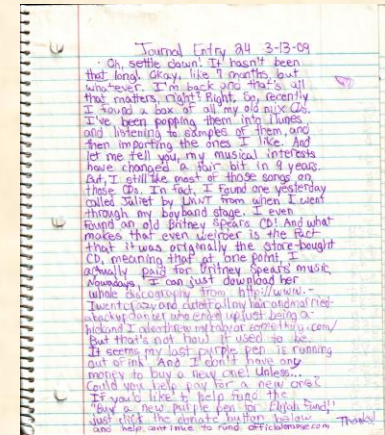 Journal Entry 24 3-13-09
Oh, settle down! It hasn't been
that long! Okay, like 7 months, but
whatever. I'm back and that's all
that matters, right? Right. So, recently
I found a box of all my old mix CDs.
I've been popping them into iTunes
and listening to samples of them, and
then importing the ones I like. And
let me tell you, my musical interests
have changed a fair bit in 9 years.
But I still like most of those songs on
those CDs. In fact, I found one yesterday
called Juliet by LMNT from when I went
through my boyband stage. I even
found an old Britney Spears CD! And what
makes that even weirder is the fact
that it was originally the store-bought
CD, meaning that at one point, I
actually paid for Britney Spears' music.
Nowadays, I can just download her
whole discography from http://www.-
Iwentcrazyandcutoffallmyhairandmarried-
abackupdancerwhoendedupjustbeinga-
.com/
But that's not how it used to be.
It seems my last purple pen is running
out of ink. And I don't have any
money to buy a new one! Unless...
Could you help pay for a new one?
If you'd like to help fund the
"Buy a new purple pen for Elijah Fund",
just click the donate button below
and help continue to fund
Thanks!